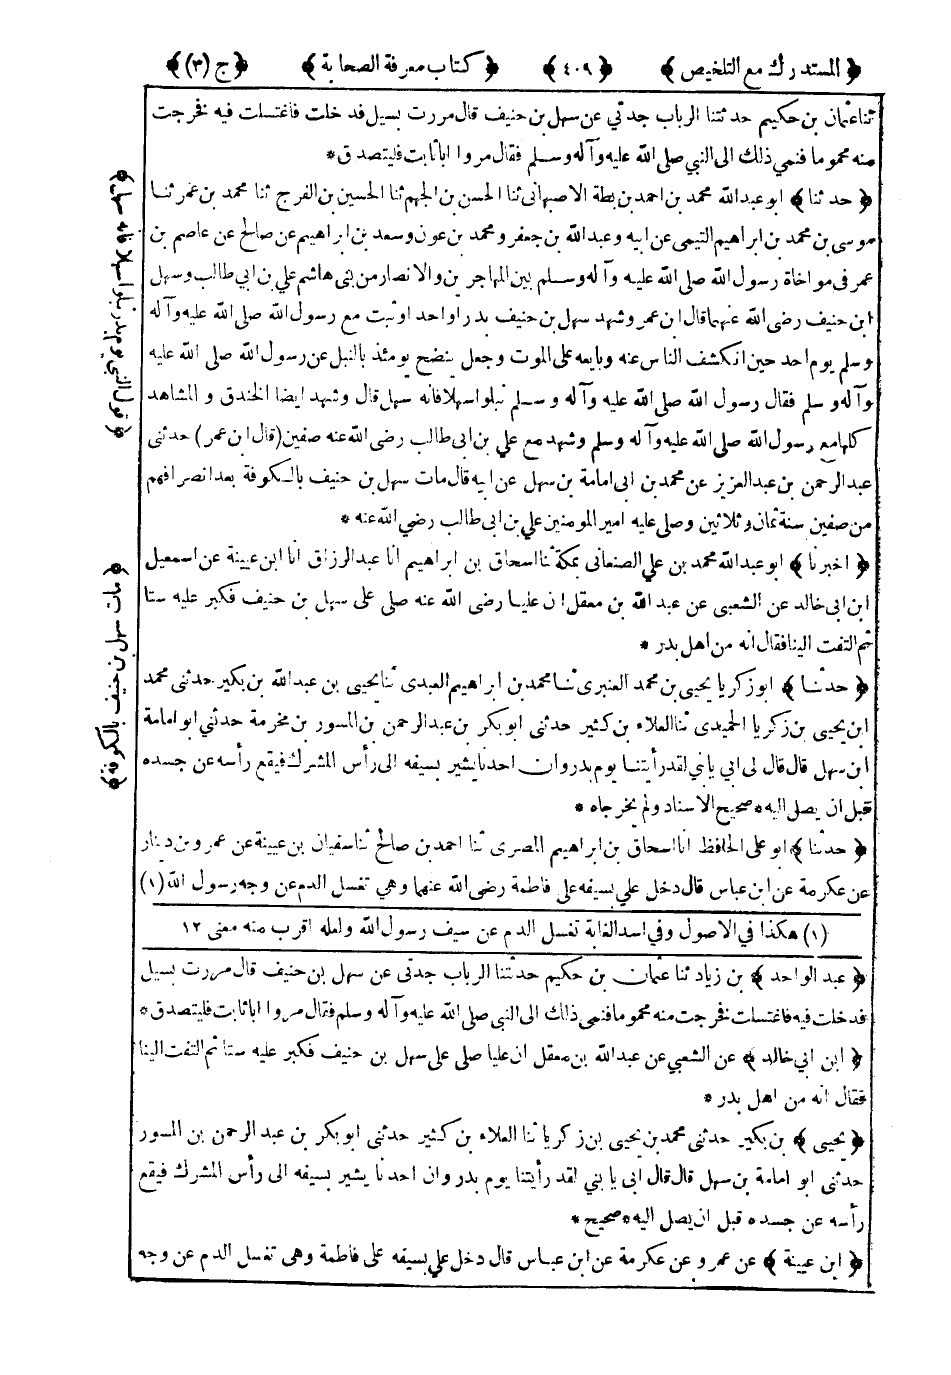 ﴿ المستدرك مع التلخيص ﴾ ﴿ ٤٠٩ ﴾ ﴿ كتاب معرفة الصحابة ﴾ ﴿ ج (٣) ﴾
ثنا عثمان بن حكيم حدثتنا الرباب جدتي عن سهل بن حنيف قال مررت بسيل فدخلت فاغتسلت فيه فخرجت
منه محموما فنمي ذلك الى النبي صلى الله عليه وآله وسلم فقال مروا اباثابت فليتصدق *
﴿ حدثنا ﴾ ابو عبدالله محمد بن احمد بن بطة الاصبهانى ثنا الحسن بن الجهم ثنا الحسين بن الفرج ثنا محمد بن عمر ثنا
موسى بن محمد بن ابراهيم التيمى عن ابيه وعبدالله بن جعفر ومحمد بن عون وسعد بن ابراهيم عن صالح عن عاصم بن
عمر فى مواخاة رسول الله صلى الله عليه وآله وسلم بين المهاجرين والانصار من بنى هاشم علي بن ابي طالب وسهل
ابن حنيف رضى الله عنهما قال ابن عمر وشهد سهل بن حنيف بدرا واحدا وثبت مع رسول الله صلى الله عليه وآله
وسلم يوم احد حين انكشف الناس عنه وبايعه على الموت وجعل ينضح يومئذ بالنبل عن رسول الله صلى الله عليه
وآله وسلم فقال رسول الله صلى الله عليه وآله وسلم نبلوا سهلا فانه سهل قال وشهد ايضا الخندق و المشاهد
كلها مع رسول الله صلى الله عليه وآله وسلم وشهد مع علي بن ابى طالب رضى الله عنه صفين (قال ابن عمر) حدثنى
عبدالرحمن بن عبدالعزيز عن محمد بن ابى امامة بن سهل عن ابيه قال مات سهل بن حنيف بالكوفة بعد انصرافهم
من صفين سنة ثمان وثلاثين وصلى عليه امير المومنين علي بن ابى طالب رضي الله عنه *
﴿ اخبرنا ﴾ ابو عبدالله محمد بن علي الصنعانى بمكة ثنا اسحاق بن ابراهيم انا عبدالرزاق انا ابن عيينة عن اسمعيل
ابن ابى خالد عن الشعبى عن عبد الله بن معقل ان عليا رضى الله عنه صلى على سهل بن حنيف فكبر عليه ستا
ثم التفت الينا فقال انه من اهل بدر *
﴿ حدثنا ﴾ ابو زكريا يحيى بن محمد العنبرى ثنا محمد بن ابراهيم العبدى ثنا يحيى بن عبدالله بن بكير حدثنى محمد
ابن يحيى بن زكريا الحميدى ثنا العلاء بن كثير حدثنى ابو بكر بن عبدالرحمن بن المسور بن مخرمة حدثني ابو امامة
ابن سهل قال قال لى ابي يا بني لقد رأيتنا يوم بدر وان احدنا يشير بسيفه الى رأس المشرك فيقع رأسه عن جسده
قبل ان يصل اليه * صحيح الاسناد ولم يخرجاه *
﴿ حدثنا ﴾ ابو على الحافظ انا اسحاق بن ابراهيم المصرى ثنا احمد بن صالح ثنا سفيان بن عيينة عن عمرو بن دينار
عن عكرمة عن ابن عباس قال دخل علي بسيفه على فاطمة رضى الله عنهما وهي تغسل الدم عن وجه رسول الله (١)
(١) هكذا في الاصول وفي اسدالغابة تغسل الدم عن سيف رسول الله ولعله اقرب منه معنى ١٢
﴿ عبد الواحد ﴾ بن زياد ثنا عثمان بن حكيم حدثتنا الرباب جدتى عن سهل بن حنيف قال مررت بسيل
فدخلت فيه فاغتسلت فخرجت منه محموما فنمى ذلك الى النبي صلى الله عليه وآله وسلم فقال مروا اباثابت فليتصدق *
﴿ ابن ابي خالد ﴾ عن الشعبي عن عبدالله بن معقل ان عليا صلى على سهل بن حنيف فكبر عليه ستا ثم التفت الينا
فقال انه من اهل بدر *
﴿ يحيى ﴾ بن بكير حدثنى محمد بن يحيى ابن زكريا ثنا العلاء بن كثير حدثنى ابو بكر بن عبد الرحمن بن المسور
حدثنى ابو امامة بن سهل قال قال ابى يا بني لقد رأيتنا يوم بدر وان احدنا يشير بسيفه الى رأس المشرك فيقع
رأسه عن جسده قبل ان يصل اليه * صحيح *
﴿ ابن عيينة ﴾ عن عمرو عن عكرمة عن ابن عباس قال دخل علي بسيفه على فاطمة وهى تغسل الدم عن وجه
﴿ قول النبي يوم بدر نبلوا سهلا فانه سهل ﴾
﴿ مات سهل بن حنيف بالكوفة ﴾